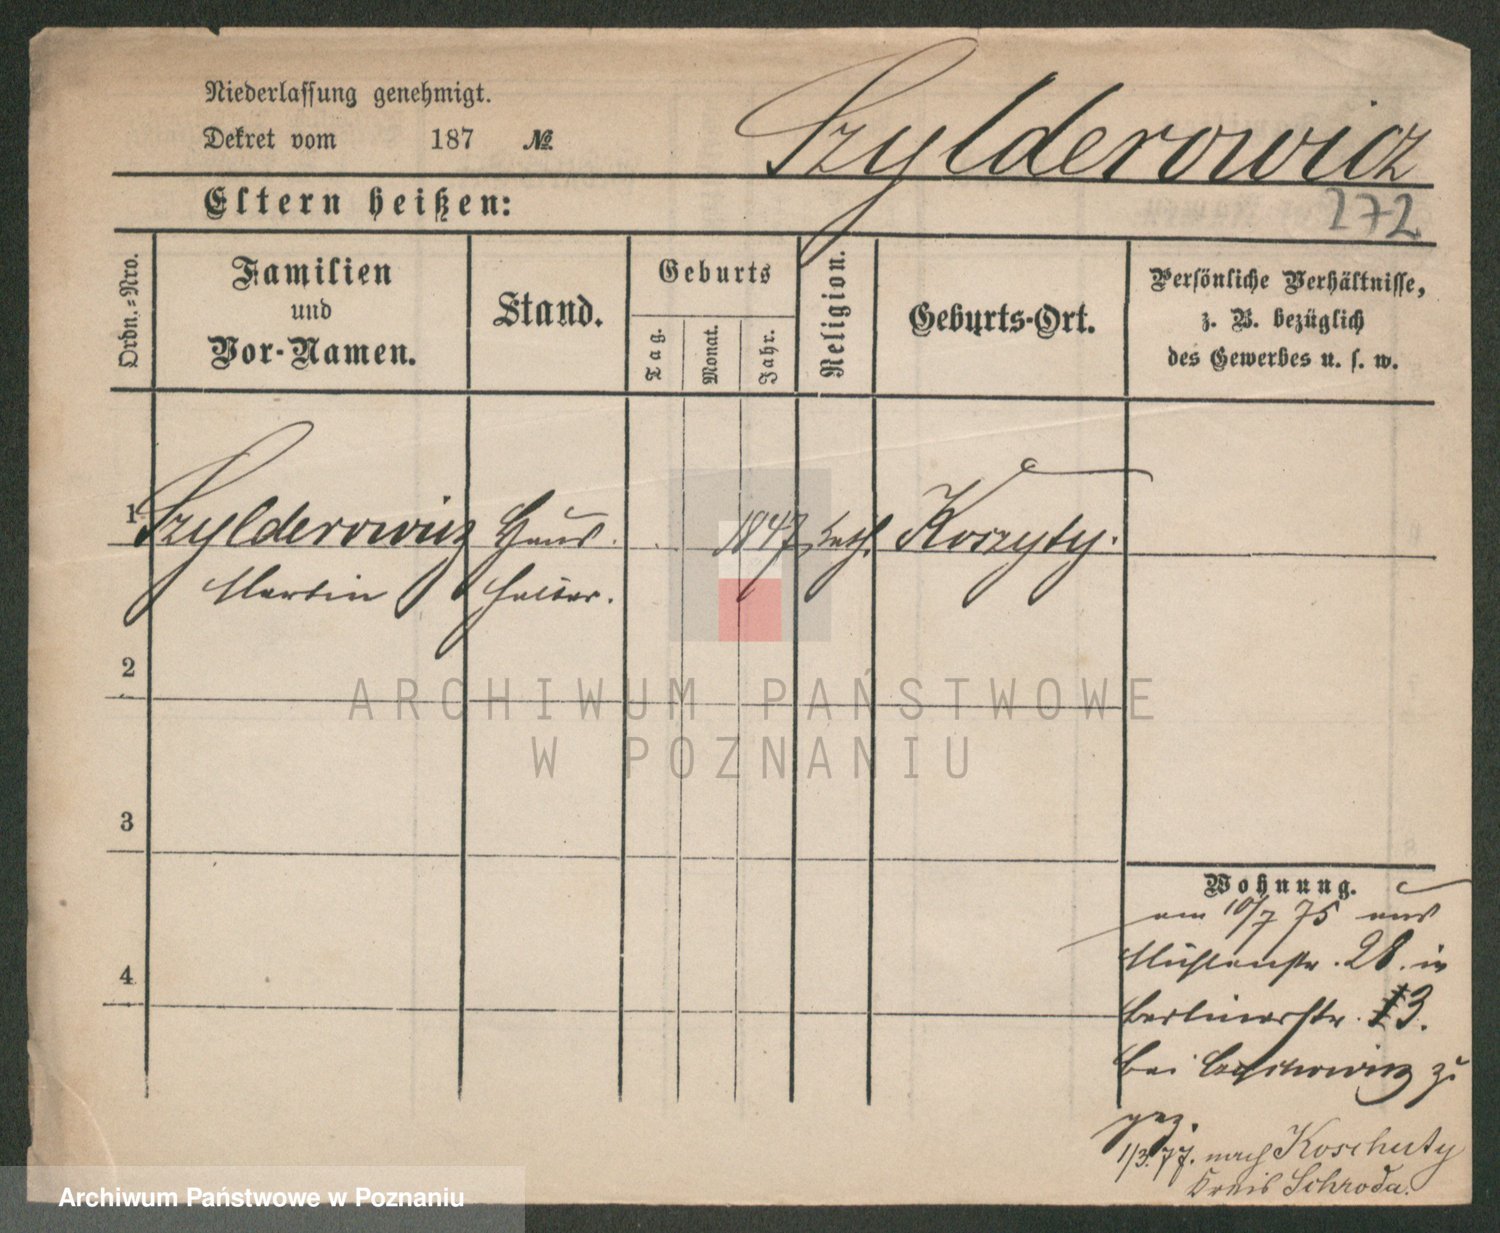 Niederlassung genehmigt.
Dekret vom 187 №
Szylderowicz
Eltern heißen:
272
Ordn.-Nro.
Familien
und
Vor-Namen.
Stand.
Geburts
Tag.
Monat.
Jahr.
Religion.
Geburts-Ort.
Persönliche Verhältnisse,
z. B. bezüglich
des Gewerbes u. s. w.
1 Szylderowicz Haus 1847 kath. Koszyty.
Martin hälter.
2
3
4
Wohnung.
am 10/7 75 aus
Mühlenstr. 28. in
Berlinerstr. 13.
bei zu
gez.
1/3. 77. nach Koschuty
Kreis Schroda.
ARCHIWUM PAŃSTWOWE
W POZNANIU
Archiwum Państwowe w Poznaniu